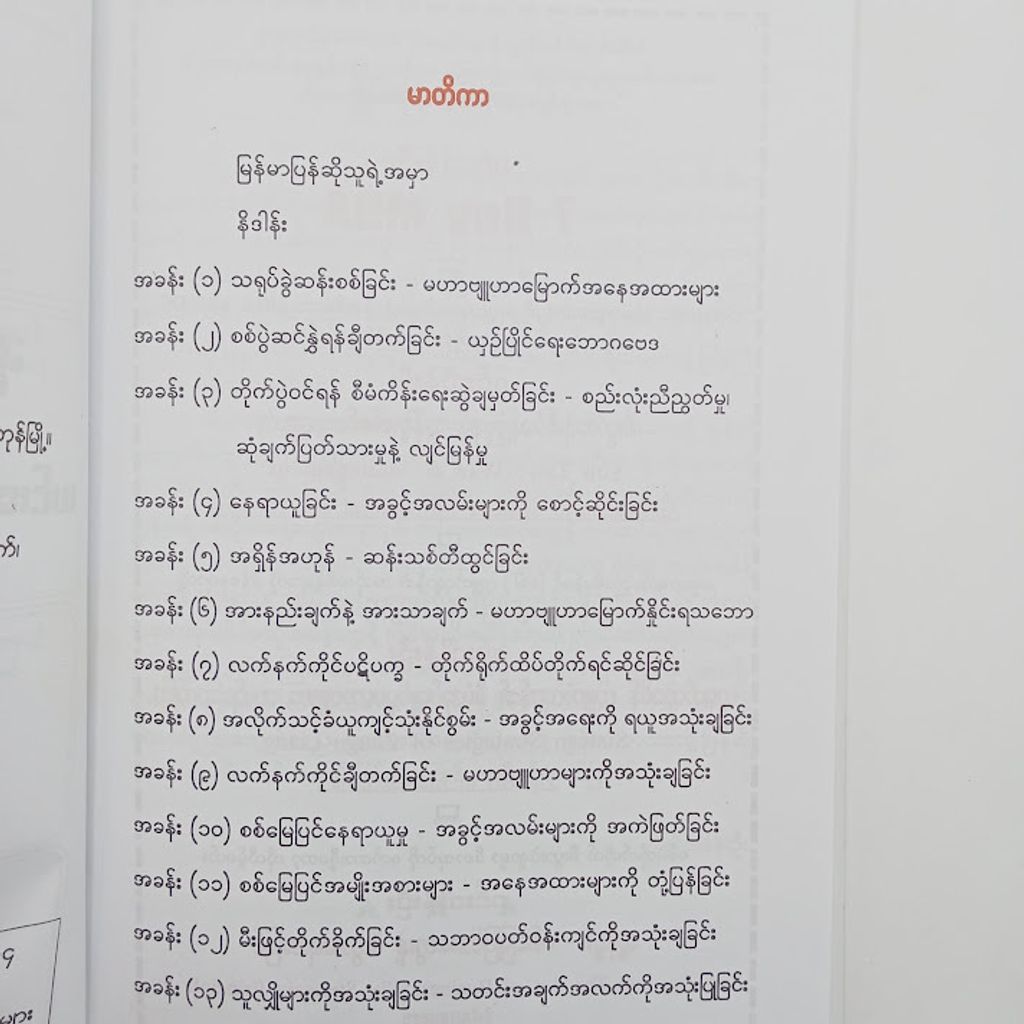 မာတိကာ
မြန်မာပြန်ဆိုသူရဲ့အမှာ
နိဒါန်း
အခန်း (၁) သရုပ်ခွဲဆန်းစစ်ခြင်း - မဟာဗျူဟာမြောက်အနေအထားများ
အခန်း (၂) စစ်ပွဲဆင်နွှဲရန်ချီတက်ခြင်း - ယှဉ်ပြိုင်ရေးဘောဂဗေဒ
အခန်း (၃) တိုက်ပွဲဝင်ရန် စီမံကိန်းရေးဆွဲချမှတ်ခြင်း - စည်းလုံးညီညွတ်မှု၊
ဆုံချက်ပြတ်သားမှုနဲ့ လျင်မြန်မှု
အခန်း (၄) နေရာယူခြင်း - အခွင့်အလမ်းများကို စောင့်ဆိုင်းခြင်း
အခန်း (၅) အရှိန်အဟုန် - ဆန်းသစ်တီထွင်ခြင်း
အခန်း (၆) အားနည်းချက်နဲ့ အားသာချက် - မဟာဗျူဟာမြောက်နှိုင်းရသဘော
အခန်း (၇) လက်နက်ကိုင်ပဋိပက္ခ - တိုက်ရိုက်ထိပ်တိုက်ရင်ဆိုင်ခြင်း
အခန်း (၈) အလိုက်သင့်ခံယူကျင့်သုံးနိုင်စွမ်း - အခွင့်အရေးကို ရယူအသုံးချခြင်း
အခန်း (၉) လက်နက်ကိုင်ချီတက်ခြင်း - မဟာဗျူဟာများကိုအသုံးချခြင်း
အခန်း (၁၀) စစ်မြေပြင်နေရာယူမှု - အခွင့်အလမ်းများကို အကဲဖြတ်ခြင်း
အခန်း (၁၁) စစ်မြေပြင်အမျိုးအစားများ - အနေအထားများကို တုံ့ပြန်ခြင်း
အခန်း (၁၂) မီးဖြင့်တိုက်ခိုက်ခြင်း - သဘာဝပတ်ဝန်းကျင်ကိုအသုံးချခြင်း
အခန်း (၁၃) သူလျှိုများကိုအသုံးချခြင်း - သတင်းအချက်အလက်ကိုအသုံးပြုခြင်း